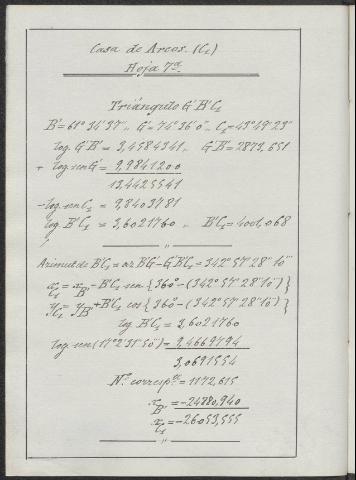 Casa de Arcos. (C₁)
Hoja 7ª
Triángulo G'B'C₁
B'=61°34'37" „ G'=74°36'0" „ C₁=43°49'23"
log. G'B' = 3,4584341 „ G'B'=2873,651
+ log. sen G' = 9,9841200
13,4425541
- log. sen C₁ = 9,8403781
log. B'C₁ = 3,6021760 „ B'C₁=4001,068
" "
Azimut de B'C₁ = az B'G' - G'B'C₁ = 342°57'28"10'''
x C₁ = x B' - B'C₁ sen {360° - (342°57'28"10''')}
y C₁ = y B' + B'C₁ cos {360° - (342°57'28"10''')}
log B'C₁ = 3,6021760
log sen (17°2'31"50''') = 9,4669794
3,0691554
Nº corresp.te = 1172,615
x B' = -24880,940
x C₁ = -26053,555
"